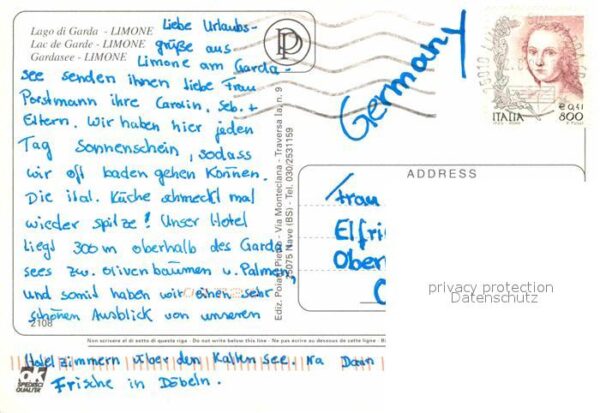 Lago di Garda - LIMONE
Lac de Garde - LIMONE
Gardasee - LIMONE
Liebe Urlaubs-
grüße aus
Limone am Garda-
see senden ihnen liebe Frau
Porstmann ihre Carolin, Seb. +
Eltern. Wir haben hier jeden
Tag Sonnenschein, sodass
wir oft baden gehen können.
Die ital. Küche schmeckt mal
wieder spitze! Unser Hotel
liegt 300m oberhalb des Garda
sees zw. Olivenbäumen u. Palmen,
und somit haben wir einen sehr
schönen Ausblick von unseren
2108
Non scrivere al di sotto di questa riga - Do not write below this line - Ne pas écrire au dessous de cette ligne -
Hotelzimmern über den Kalten See. Na Dann
Frische in Döbeln.
OK
SPEDIRECI
QUALITER
Ediz. Poiatti Pietro - Via Monteclana - Traversa Ia, n. 9
25075 Nave (BS) - Tel. 030/2531159
Germany
ITALIA
€ 0,41
800
ADDRESS
Frau
Elfri
Ober
privacy protection
Datenschutz